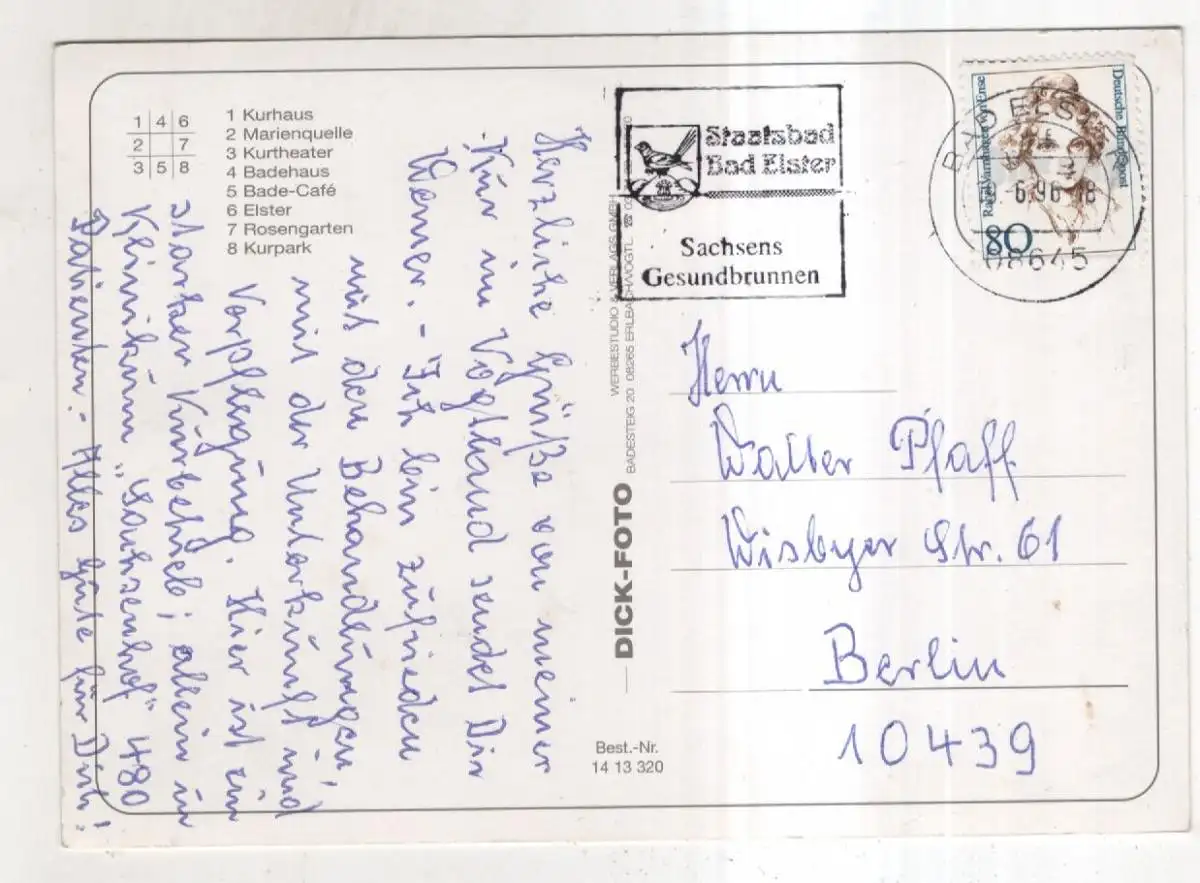 1 4 6
2 7
3 5 8
1 Kurhaus
2 Marienquelle
3 Kurtheater
4 Badehaus
5 Bade-Café
6 Elster
7 Rosengarten
8 Kurpark
Herzliche Grüße von meiner
Kur im Vogtland sendet Dir
Werner. - Ich bin zufrieden
mit den Behandlungen,
mit der Unterkunft und
Verpflegung. Hier ist ein
starker Kurbetrieb; allein im
Klinikum "Sachsenhof" 480
Patienten. - Alles Gute für Dich!
DICK-FOTO
WERBESTUDIO & VERLAGS GMBH
BADESTEIG 20 08265 ERLBACH/VOGTL
Best.-Nr.
14 13 320
Staatsbad
Bad Elster
Sachsens
Gesundbrunnen
Deutsche Bundespost
Rahel Varnhagen von Ense
80
BAD ELSTER
.-6.96-18
08645
Herrn
Walter Pfaff
Wisbyer Str. 61
Berlin
10439